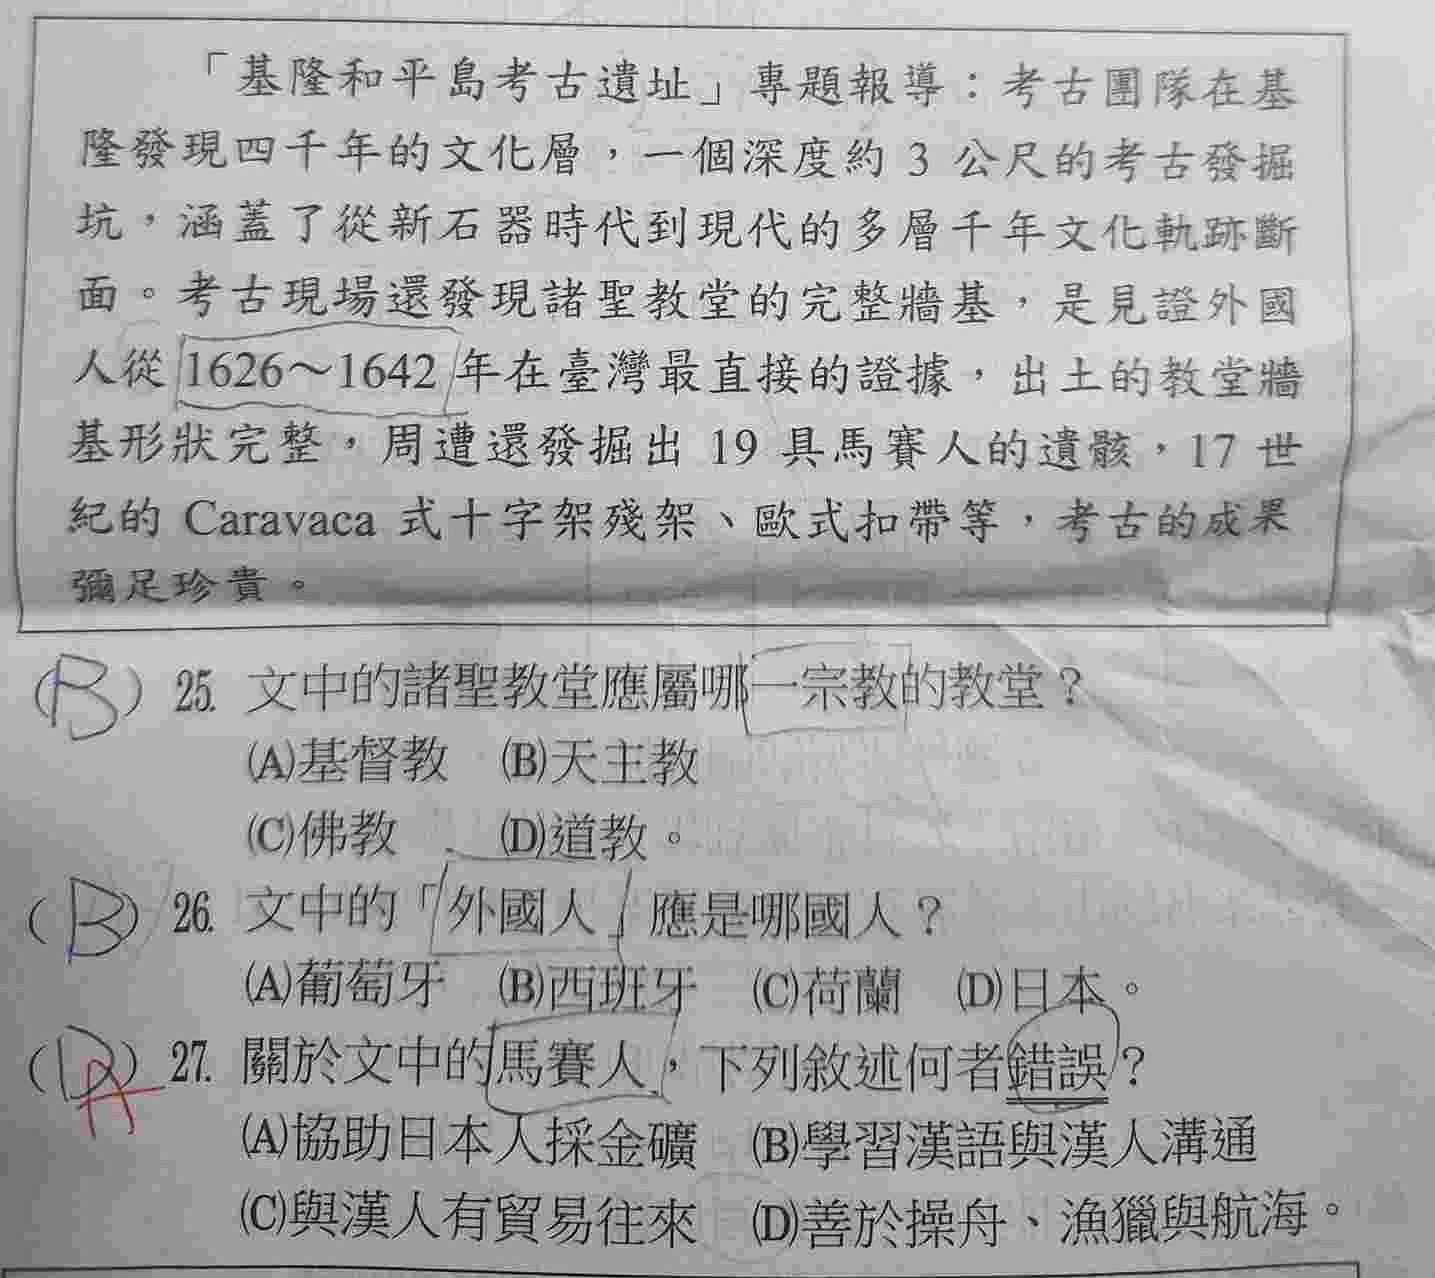 「基隆和平島考古遺址」專題報導：考古團隊在基
隆發現四千年的文化層，一個深度約 3 公尺的考古發掘
坑，涵蓋了從新石器時代到現代的多層千年文化軌跡斷
面。考古現場還發現諸聖教堂的完整牆基，是見證外國
人從 1626～1642 年在臺灣最直接的證據，出土的教堂牆
基形狀完整，周遭還發掘出 19 具馬賽人的遺骸，17 世
紀的 Caravaca 式十字架殘架、歐式扣帶等，考古的成果
彌足珍貴。
(B) 25. 文中的諸聖教堂應屬哪一宗教的教堂？
(A)基督教 (B)天主教
(C)佛教 (D)道教。
(B) 26. 文中的「外國人」應是哪國人？
(A)葡萄牙 (B)西班牙 (C)荷蘭 (D)日本。
(D) A 27. 關於文中的馬賽人，下列敘述何者錯誤？
(A)協助日本人採金礦 (B)學習漢語與漢人溝通
(C)與漢人有貿易往來 (D)善於操舟、漁獵與航海。